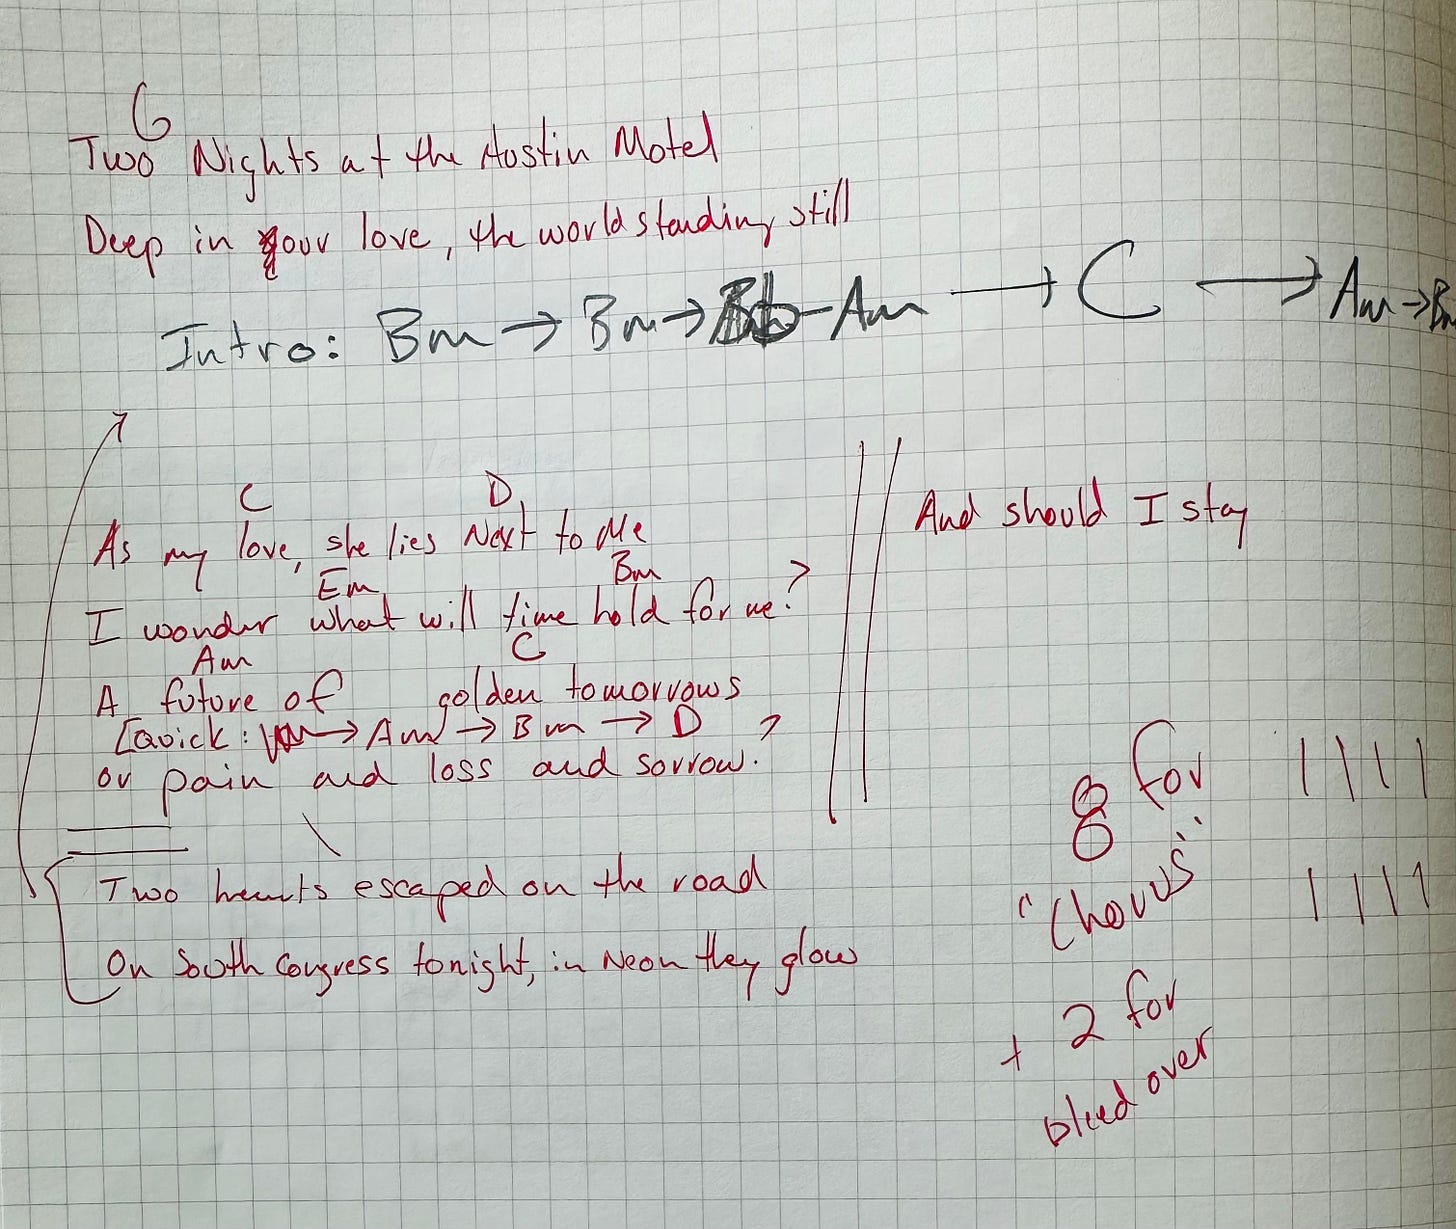 G
Two Nights at the Austin Motel
Deep in your love, the world standing still
Intro: Bm → Bm → Am → C → Am → Bm
C D
As my love, she lies Next to Me
Em Bm
I wonder what will time hold for me?
Am C
A future of golden tomorrows
[Quick: → Am → Bm → D
or pain and loss and sorrow?
Two hearts escaped on the road
On South Congress tonight, in Neon they glow
And should I stay
8 for
"Chorus"
+ 2 for
bleed over
| | | |
| | | |